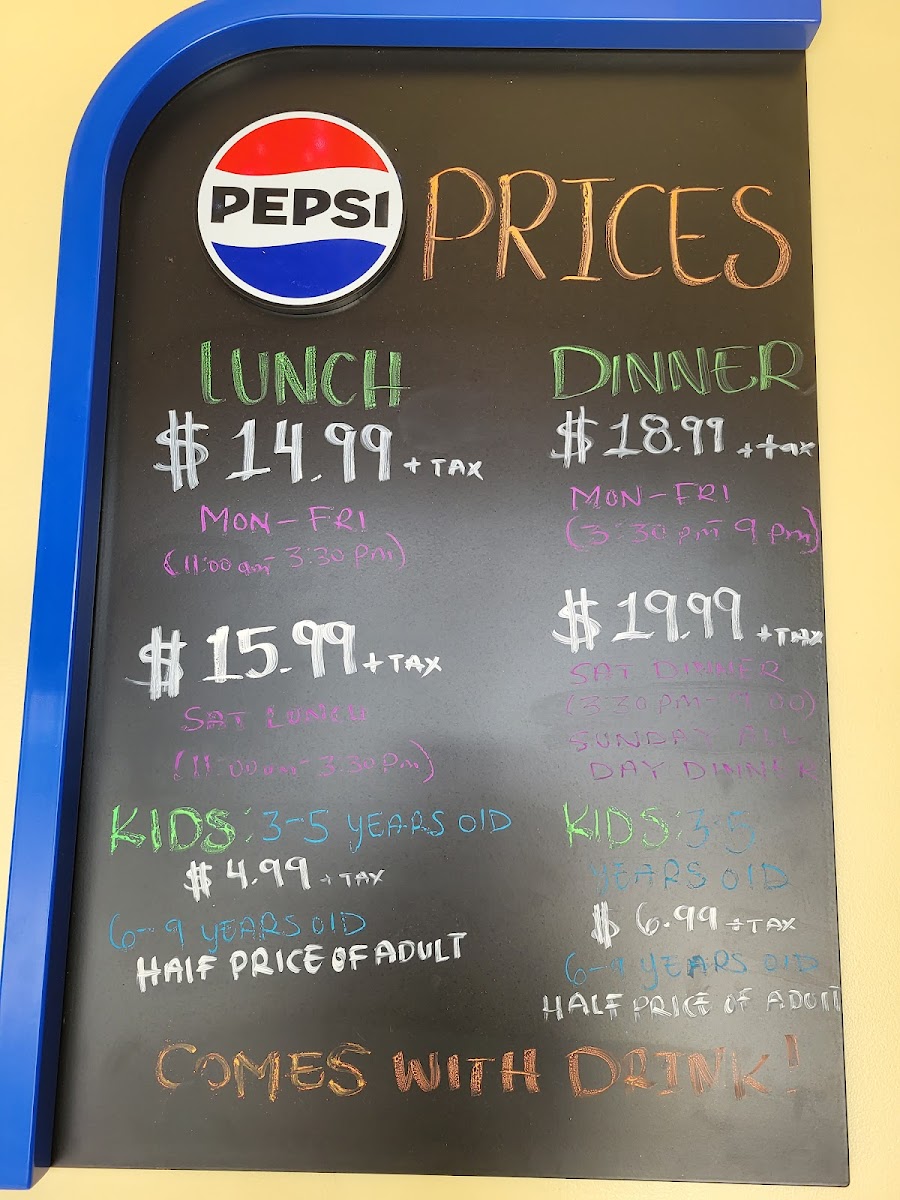 PEPSI
PRICES
LUNCH
$ 14.99 + TAX
MON-FRI
(11:00 am- 3:30 pm)
$ 15.99 + TAX
SAT LUNCH
(11:00am- 3:30 Pm)
KIDS: 3-5 YEARS OLD
$ 4.99 + TAX
6-9 YEARS OLD
HALF PRICE OF ADULT
DINNER
$ 18.99 + tax
MON-FRI
(3:30 pm- 9 Pm)
$ 19.99 + TAX
SAT DINNER
(3:30 pm- 9:00)
SUNDAY ALL
DAY DINNER
KIDS: 3-5
YEARS OLD
$ 6.99 + TAX
6-9 YEARS OLD
HALF PRICE OF ADULT
COMES WITH DRINK!